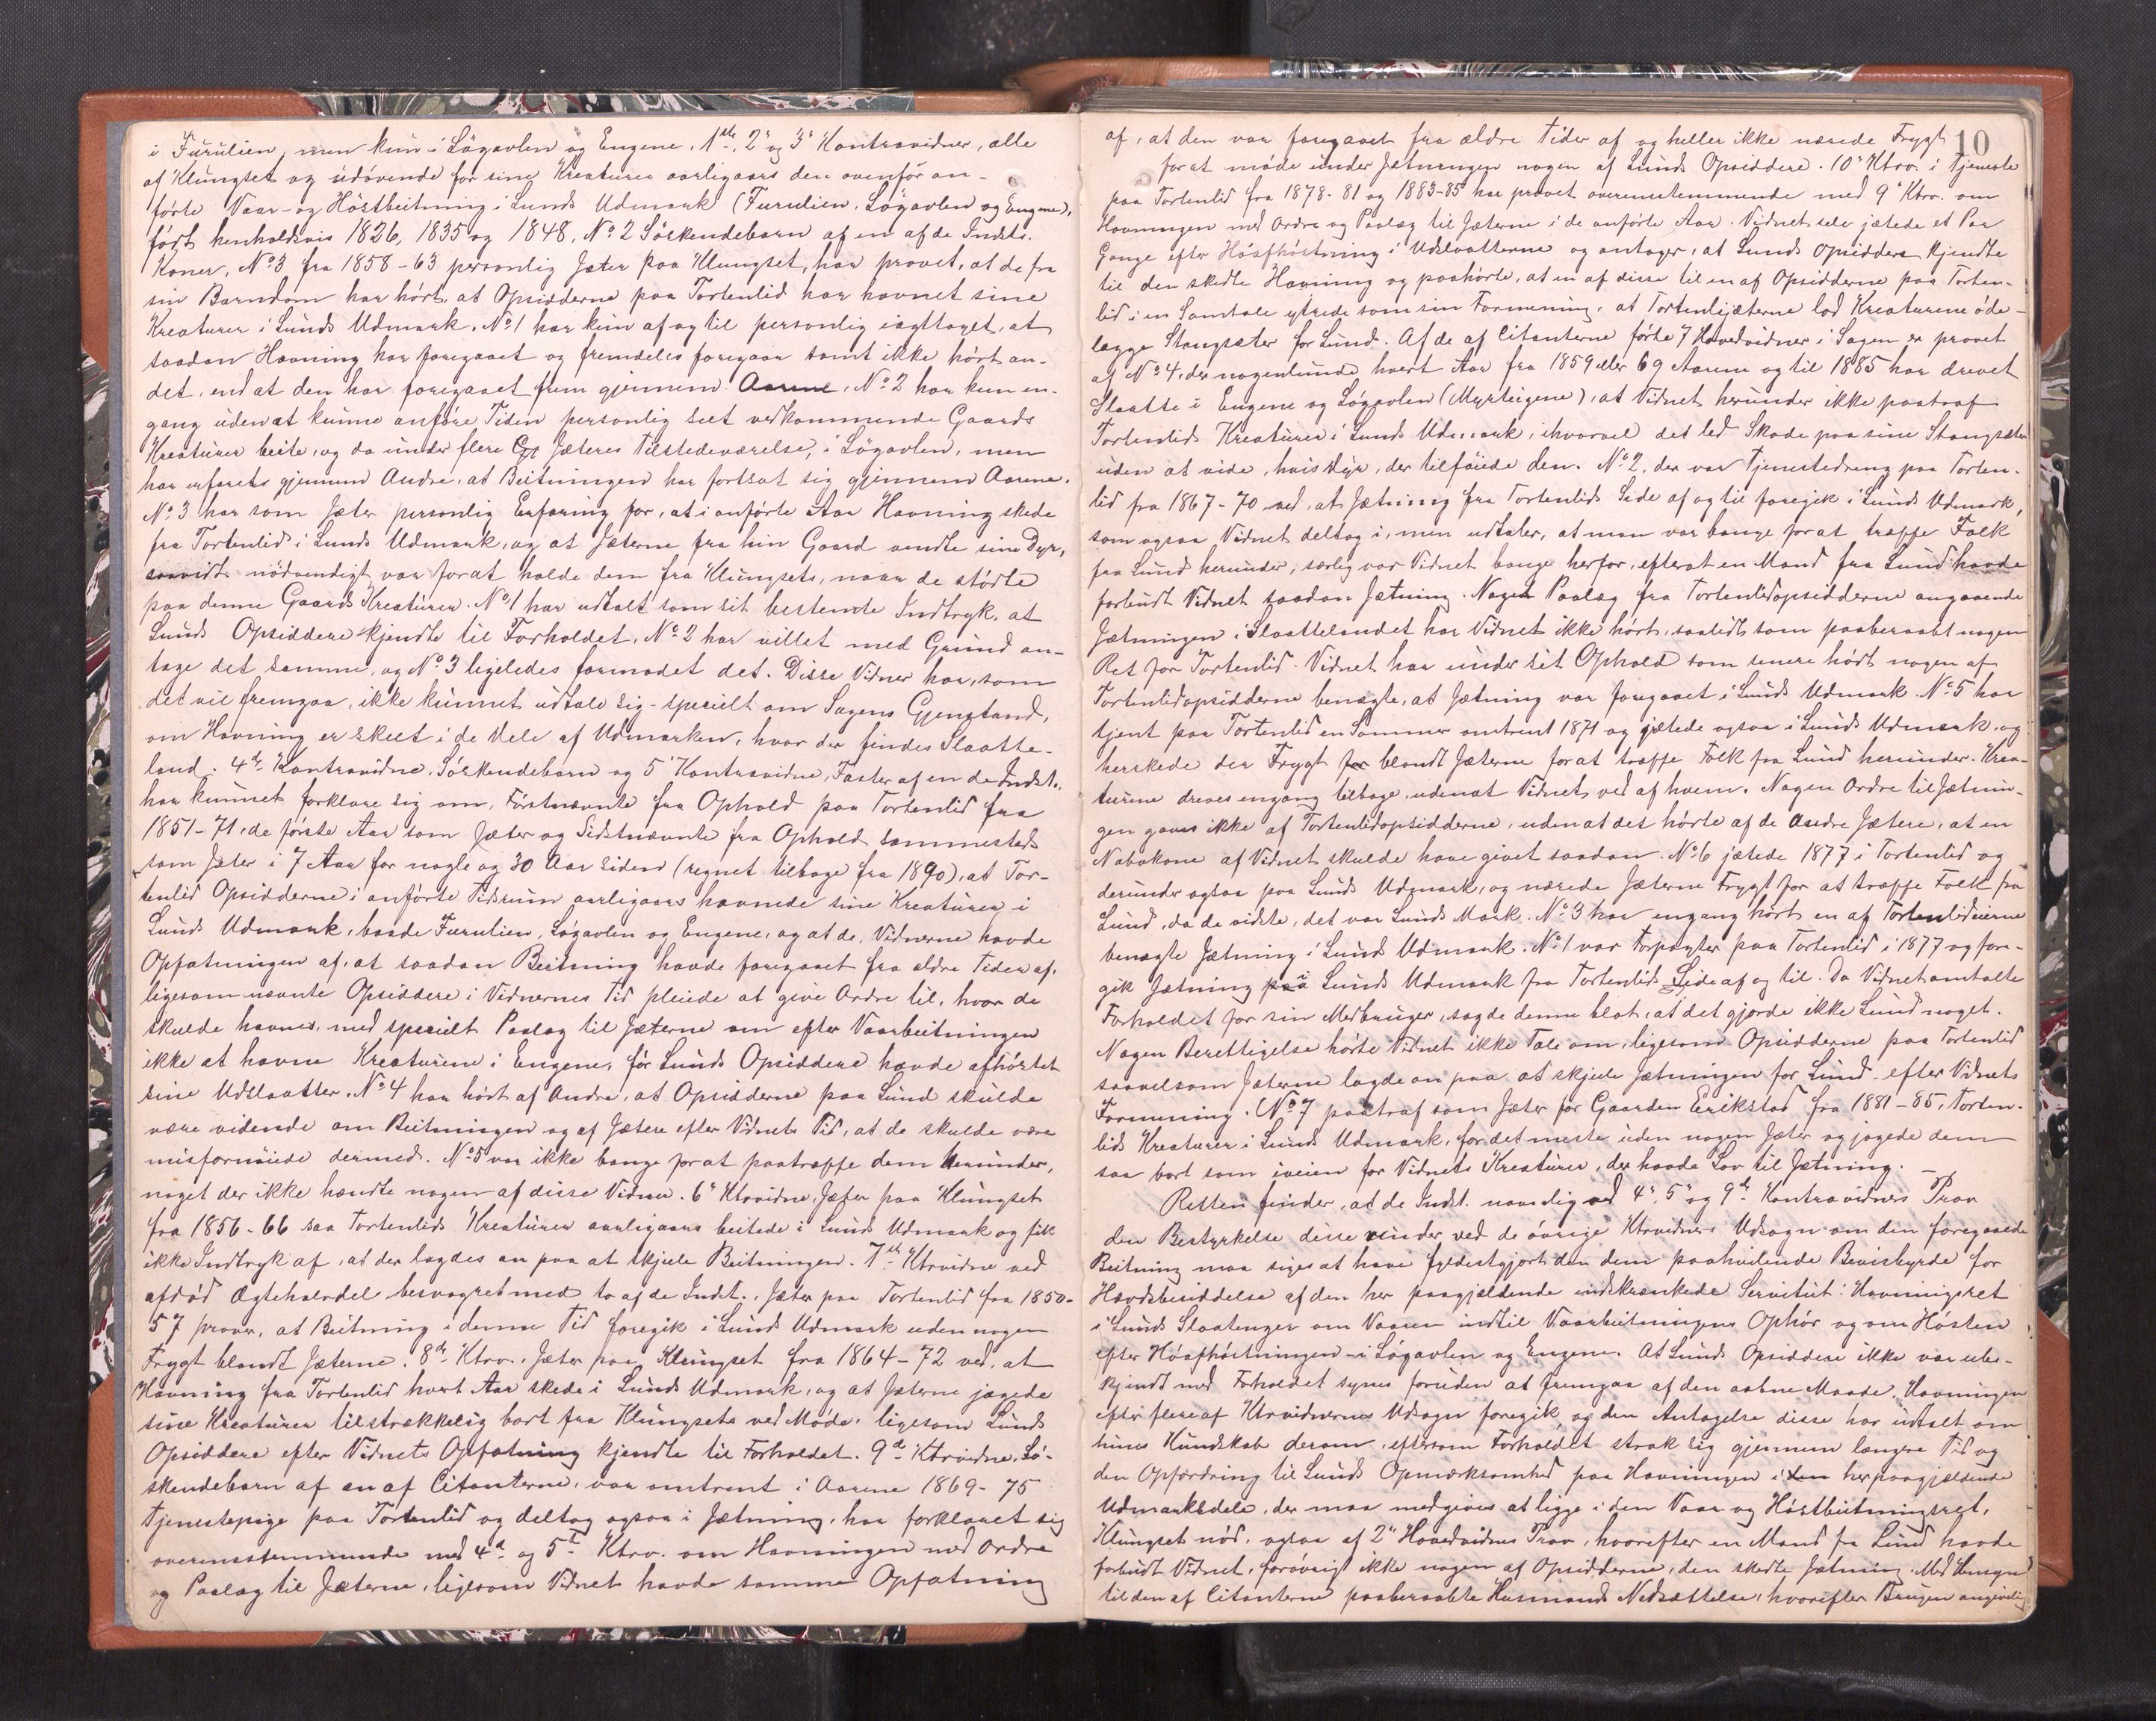 i Furulien, men kun i Løgavlen og Engene. 1ste, 2' og 3' Kontravidner, alle
af Klungset og udøvende for sine Kreaturer aarligaars den ovenfor an-
førte Vaar- og Høstbeitning i Lunds Udmark (Furulien, Løgavlen og Engene),
født henholdsvis 1826, 1835 og 1848. No 2 Søskendebarn af en af de Indst.
Koner, No 3 fra 1858-63 personlig Jæter paa Klungset, har provet, at de fra
sin Barndom har hørt, at Opsidderne paa Tortenlid har havnet sine
Kreaturer i Lunds Udmark. No 1 har kun af og til personlig iagttaget, at
saadan Havning har foregaaet og fremdeles foregaar samt ikke hørt an-
det, end at den har foregaaet frem gjennem Aarene. No 2 har kun en-
gang uden at kunne anføre Tiden personlig seet vedkommende Gaards
Kreaturer beite, og da under flere Jæteres Tilstedeværelse, i Løgavlen, men
har erfaret gjennem Andre, at Beitningen har fortsat sig gjennem Aarene.
No 3 har som Jæter personlig Erfaring for, at i anførte Aar Havning skede
fra Tortenlid i Lunds Udmark, og at Jæterne fra hin Gaard vendte sine Dyr,
saavidt nødvendigt var forat holde dem fra Klungsets, naar de stødte
paa denne Gaards Kreaturer. No 1 har udtalt som sit bestemte Indtryk, at
Lunds Opsiddere kjendte til Forholdet. No 2 har villet med Grund an-
tage det samme, og No 3 ligeledes formodet det. Disse Vidner har, som
det vil fremgaa, ikke kunnet udtale sig specielt om Sagens Gjenstand,
om Havning er skeet i de Dele af Udmarken, hvor der findes Slaatte-
land. 4de Kontravidne, Søskendebarn og 5' Kontravidne, Faster af en de Indst.,
har kunnet forklare sig om, Førstnævnte fra Ophold paa Tortenlid fra
1851-71, de første Aar som Jæter og Sidstnævnte fra Ophold sammesteds
som Jæter i 7 Aar for nogle og 30 Aar siden (regnet tilbage fra 1890), at Tor-
tenlid Opsidderne i anførte Tidsrum aarligaars havnede sine Kreaturer i
Lunds Udmark, baade Furulien, Løgavlen og Engene, og at de, Vidnerne havde
Opfatningen af, at saadan Beitning havde foregaaet fra ældre Tider af,
ligesom nævnte Opsiddere i Vidnernes Tid pleiede at give Ordre til, hvor de
skulde havnes, med specielt Paalæg til Jæterne om efter Vaarbeitningen
ikke at havne Kreaturene i Engene, før Lunds Opsiddere havde afhøstet
sine Udslaatter. No 4 har hørt af Andre, at Opsidderne paa Lund skulde
være vidende om Beitningen og af Jætere efter Vidnets Tid, at de skulde være
misfornøiede dermed. No 5 var ikke bange forat paatræffe dem herunder,
noget der ikke hændte nogen af disse Vidner. 6' Ktravidne, Jæter paa Klungset
fra 1856-66 saa Tortenlids Kreaturer aarligaars beitede i Lunds Udmark og fik
ikke Indtryk af, at der lagdes an paa at skjule Beitningen. 7de Ktrvidne ved
afdød Ægtehalvdel besvogret med to af de Indst., Jæter paa Tortenlid fra 1850-
57 prover, at Beitning i denne Tid foregik i Lunds Udmark uden nogen
Frygt blandt Jæterne. 8de Ktrv., Jæter paa Klungset fra 1864-72 ved, at
Havning fra Tortenlid hvert Aar skede i Lunds Udmark, og at Jæterne jagede
sine Kreaturer tilstrækkelig bort fra Klungsets ved Møde, ligesom Lunds
Opsiddere efter Vidnets Opfatning kjendte til Forholdet. 9de Ktrvidne, Sø-
skendebarn af en af Citanterne, var omtrent i Aarene 1869-75
Tjenestepige paa Tortenlid og deltog ogsaa i Jætning, har forklaret sig
overensstemmende med 4de og 5te Ktrv. om Havningen med Ordre
og Paalæg til Jæterne, ligesom Vidnet havde samme Opfatning
10
af, at den var foregaaet fra ældre Tider af og heller ikke nærede Frygt
forat møde under Jætningen nogen af Lunds Opsiddere. 10' Ktrv. i Tjeneste
paa Tortenlid fra 1878-81 og 1883-85 har provet overensstemmende med 9' Ktrv. om
Havningen med Ordre og Paalæg til Jæterne i de anførte Aar. Vidnet selv jætede et Par
Gange efter Høafhøstning i Udslaatterne og antager, at Lunds Opsiddere kjendte
til den skedte Havning og paahørte, at en af disse til en af Opsidderne paa Torten-
lid i en Samtale ytrede som sin Formening, at Tortenlijæterne lod Kreaturene øde-
lægge Stangsæter for Lund. Af de af Citanterne førte 7 Hovedvidner i Sagen er provet
af No 4, der nogenlunde hvert Aar fra 1859 eller 69 Aarene og til 1885 har drevet
Slaatte i Engene og Løgavlen (Myrteigene), at Vidnet herunder ikke paatraf
Tortenlids Kreaturer i Lunds Udmark, ihvorvel det led Skade paa sine Stangsæter
uden at vide, hvis Dyr, der tilføiede den. No 2, der var Tjenestedreng paa Torten-
lid fra 1867-70 ved, at Jætning fra Tortenlids Side af og til foregik i Lunds Udmark,
som ogsaa Vidnet deltog i, men udtaler, at man var bange forat træffe Folk
fra Lund herunder, særlig var Vidnet bange herfor, efterat en Mand fra Lund havde
forbudt Vidnet saadan Jætning. Noget Paalæg fra Tortenlidopsidderne angaaende
Jætningen i Slaattelandet har Vidnet ikke hørt, saalidt som paaberaabt nogen
Ret for Tortenlid. Vidnet har under sit Ophold som senere hørt nogen af
Tortenlidopsidderne benægte, at Jætning var foregaaet i Lunds Udmark. No 5 har
tjent paa Tortenlid en Sommer omtrent 1871 og jætede ogsaa i Lunds Udmark, og
herskede der Frygt for blandt Jæterne forat træffe Folk fra Lund herunder. Krea-
turene dreves engang tilbage, udenat Vidnet ved af hvem. Nogen Ordre til Jætnin-
gen gaves ikke af Tortenlidopsidderne, uden at det hørte af de andre Jætere, at en
Nabokone af Vidnet skulde have givet saadan. No 6 jætede 1877 i Tortenlid og
derunder ogsaa paa Lunds Udmark, og nærede Jæterne Frygt for at træffe Folk fra
Lund, da de vidste, det var Lunds Mark. No 3 har engang hørt en af Tortenlideierne
benægte Jætning i Lunds Udmark. No 1 var Forpagter paa Tortenlid i 1877 og fore-
gik Jætning paa i Lunds Udmark fra Tortenlids Side af og til. Da Vidnet omtalte
Forholdet for sin Medbruger, sagde denne blot, at det gjorde ikke Lund noget.
Nogen Berettigelse hørte Vidnet ikke Tale om, ligesom Opsidderne paa Tortenlid
saavelsom Jæterne lagde an paa at skjule Jætningen for Lund efter Vidnets
Formening. No 7 paatraf som Jæter for Gaarden Erikstad fra 1881-85, Torten-
lids Kreaturer i Lunds Udmark, for det meste uden nogen Jæter og jagede dem
saa bort som iveien for Vidnets Kreaturer, der havde Lov til Jætning. —
Retten finder, at de Indst. navnlig ved 4', 5' og 9de Kontravidners Prov
den Bestyrkelse disse vinder ved de øvrige Ktrvidners Udsagn om den foregaaede
Beitning maa siges at have fyldestgjort den dem paahvilende Bevisbyrde for
Hævdsbesiddelse af den her paagjældende indskrænkede Servitut: Havningsret
i Lunds Slaatenger om Vaaren indtil Vaarbeitningens Ophør og om Høsten
efter Høafhøstningen i Løgavlen og Engene. At Lunds Opsiddere ikke var ube-
kjendt med Forholdet synes foruden at fremgaa af den aabne Maade, Havningen
efter flere af Ktrvidnernes Udsagn foregik, og den Antagelse disse har udtalt om
hines Kundskab derom, eftersom Forholdet strak sig gjennem længre Tid og
den Opfordring til Lunds Opmærksomhed paa Havningen i den her paagjældende
Udmarksdele, der maa medgives at ligge i den Vaar og Høstbeitningsret,
Klungset nød, ogsaa af 2' Hovedvidnes Prov, hvorefter en Mand fra Lund havde
forbudt Vidnet, forøvrigt ikke nogen af Opsidderne, den skedte Jætning. Med Hensyn
til den af Citanterne paaberaabte Husmands Nedsættelse, hvorefter Brugen angivelig